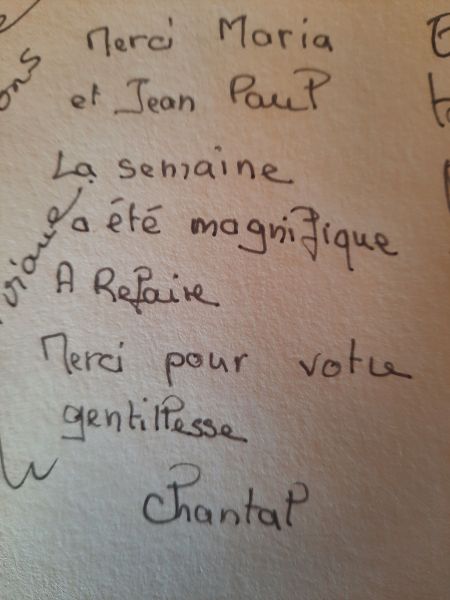 Merci Maria
et Jean Paul
La semaine
a été magnifique
A Refaire
Merci pour votre
gentillesse
Chantal